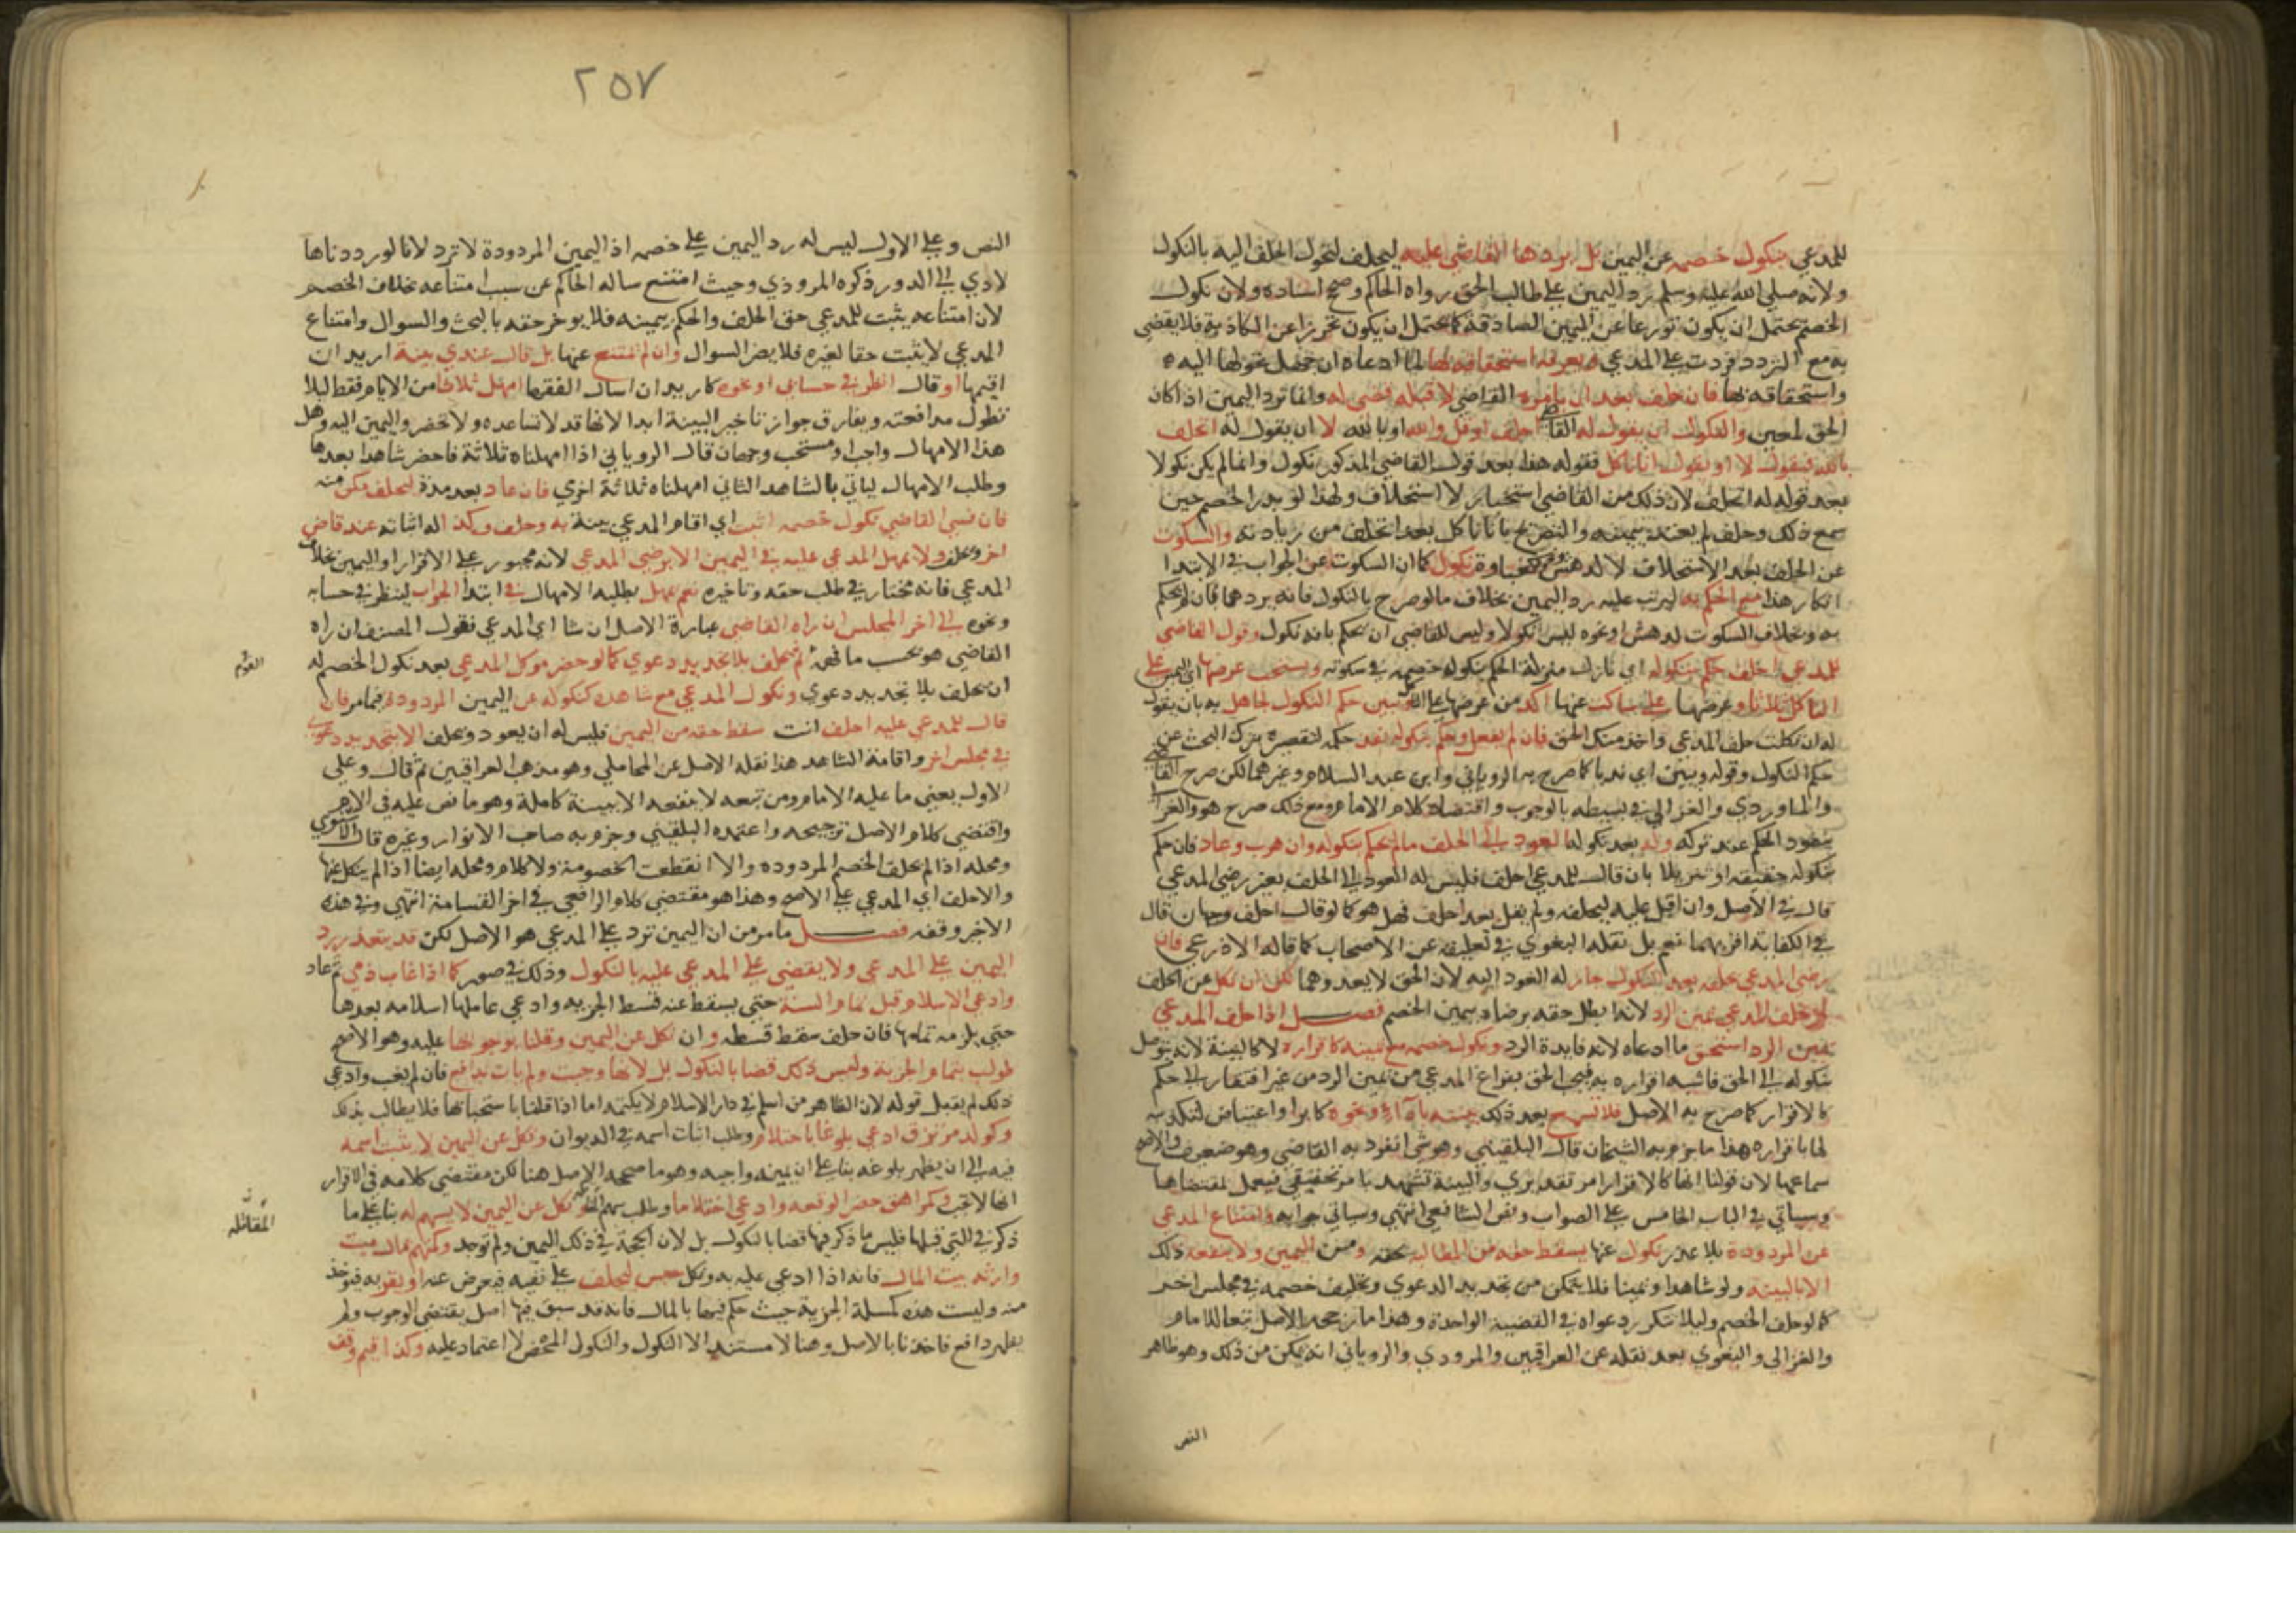 للمدعي بنكول خصمه عن اليمين بل يردها القاضي عليه ليحلف لتحول الحلف اليه بالنكول
ولانه صلى الله عليه وسلم رد اليمين على طالب الحق رواه الحاكم وصحح اسناده ولان نكول
الخصم يحتمل ان يكون تورعا عن اليمين الصادقة كما يحتمل ان يكون تحرزا عن الكاذبة فلا يقضى
به مع التردد فردت على المدعي ويعرفه استحقاقه بها لما ادعاه ان جهل تحولها اليه
واستحقاقه بها فان حلف بعد ان يامره القاضي لا قبله قضى له وانما ترد اليمين اذا كان
الحق لمعين والنكول ان يقول له القاضي احلف او قل والله او بالله لا ان يقول له اتحلف
بالله فيقول لا او يقول انا ناكل فقوله هذا بعد قول القاضي المذكور نكول وانما لم يكن نكولا
بعد قوله له اتحلف لان ذلك من القاضي استخبار لا استحلاف ولهذا لو بدر الخصم حين
سمع ذلك وحلف لم يعتد بيمينه والتصريح بانا ناكل بعد اتحلف من زيادته والسكوت
عن الحلف بعد الاستحلاف لا لدهش ونحوه نكول كما ان السكوت عن الجواب في الابتدا
انكار هذا مع الحكم به ليرتب عليه رد اليمين بخلاف ما لو صرح بالنكول فانه يردها فان لم يحكم
به وبخلاف السكوت لدهش او نحوه ليس نكولا وليس للقاضي ان يحكم بانه نكول وقول القاضي
للمدعي احلف حكم بنكوله اي نازل منزلة الحكم بنكول خصمه في سكوته ويستحب عرضها اي اليمين على
الناكل ثلاثا وعرضها على ساكت عنها اكد من عرضها على الناكل ويبين حكم النكول لجاهل به بان يقول
له ان نكلت حلف المدعي واخذ منك الحق فان لم يفعل وحكم بنكوله نفذ حكمه لتقصيره بترك البحث عن
حكم النكول وقوله ويبين اي ندبا كما صرح به الروياني وابن عبد السلام وغيرهما لكن صرح القاضي
والماوردي والغزالي في بسيطه بالوجوب واقتضاه كلام الامام ومع ذلك صرح هو والغزالي
بنفوذ الحكم عند تركه وله بعد نكوله العود الى الحلف ما لم يحكم بنكوله وان هرب وعاد فان حكم
بنكوله حقيقة او تنزيلا بان قال للمدعي احلف فليس له العود الى الحلف بغير رضى المدعي
قال في الاصل وان اقبل عليه ليحلفه ولم يقل بعد احلف فهل هو كما لو قال احلف وجهان قال
في الكفاية اقربهما نعم بل نقله البغوي في تعليقه عن الاصحاب كما قاله الاذرعي فان
رضي المدعي بحلفه بعد النكول جاز له العود اليه لان الحق لا يعدوهما لكن ان نكل عن الحلف
لم يحلف المدعي يمين الرد لانه ابطل حقه برضاه بيمين الخصم فصل اذا حلف المدعي
يمين الرد استحق ما ادعاه لانه فايدة الرد ونكول خصمه مع يمينه كاقراره لا كالبينة لانه يتوصل
بنكوله الى الحق فاشبه اقراره به فيجب الحق بفراغ المدعي من يمين الرد من غير افتقار الى حكم
كالاقرار كما صرح به الاصل فلا تسمع بعد ذلك بينته بادا ونحوه كابرا واعتياض لتكذيبه
لها باقراره هذا ما جزم به الشيخان قال البلقيني وهو شي انفرد به القاضي وهو ضعيف والاصح
سماعها لان قولنا انها كالاقرار امر تقديري والبينة تشهد بامر تحقيقي فيعمل بمقتضاها
وسياتي في الباب الخامس على الصواب ونص الشافعي انتهى وسياتي جوابه وامتناع المدعي
عن المردودة بلا عذر نكول عنها يسقط حقه من المطالبة بحقه ومن اليمين ولا ينفعه ذلك
الا بالبينة ولو شاهدا ويمينا فلا يتمكن من تجديد الدعوى وتحليف خصمه في مجلس اخر
كما لو حلف الخصم وليلا تتكرر دعواه في القضية الواحدة وهذا ما رجحه الاصل تبعا للامام
والغزالي والبغوي بعد نقله عن العراقيين والمروذي والروياني انه يمكن من ذلك وهو ظاهر
النص
٢٥٧
النص وعلى الاول ليس له رد اليمين على خصمه اذ اليمين المردودة لا ترد لانا لو رددناها
لادي الى الدور ذكره المروذي وحيث امتنع ساله الحاكم عن سبب امتناعه بخلاف الخصم
لان امتناعه يثبت للمدعي حق الحلف والحكم بيمينه فلا يوخر حقه بالبحث والسوال وامتناع
المدعي لا يثبت حقا لغيره فلا يضر السوال وان لم يمتنع عنها بل قال عندي بينة اريد ان
اقيمها او قال انظر في حسابي او نحوه كاريد ان اسال الفقها امهل ثلاثا من الايام فقط ليلا
تطول مدافعته ويفارق جواز تاخير البينة ابدا لانها قد لا تساعده ولا تحضر واليمين اليه وهل
هذا الامهال واجب او مستحب وجهان قال الروياني اذا امهلناه ثلاثة فاحضر شاهدا بعدها
وطلب الامهال لياتي بالشاهد الثاني امهلناه ثلاثة اخرى فان عاد بعد مدة ليحلف مكن منه
فان نسي القاضي نكول خصمه اثبت اي اقام المدعي بينة به وحلف وكذا له اثباته عند قاض
اخر ويحلف ولا يمهل المدعى عليه في اليمين الا برضى المدعي لانه مجبور على الاقرار او اليمين بخلاف
المدعي فانه مختار في طلب حقه وتاخيره نعم يمهل بطلبه الامهال في ابتدا الجواب لينظر في حسابه
ونحوه الى اخر المجلس ان راه القاضي عبارة الاصل ان شا اي المدعي فقول المصنف ان راه
القاضي هو بحسب ما فهمه ثم يحلف بلا تجديد دعوى كما لو حضر موكل المدعي بعد نكول الخصم له
ان يحلف بلا تجديد دعوى ونكول المدعي مع شاهده كنكوله عن اليمين المردودة فيما مر فان
قال للمدعى عليه احلف انت سقط حقه من اليمين فليس له ان يعود ويحلف الا بتجديد دعوى
في مجلس اخر واقامة الشاهد هذا نقله الاصل عن المحاملي وهو مذهب العراقيين ثم قال وعلى
الاول يعني ما عليه الامام ومن تبعه لا ينفعه الا ببينة كاملة وهو ما نص عليه في الام
واقتضى كلام الاصل ترجيحه واعتمده البلقيني وجزم به صاحب الانوار وغيره قال الاسنوي
ومحله اذا لم يحلف الخصم المردوده والا انقطعت الخصومة ولا كلام ومحله ايضا اذا لم ينكل عنها
والا حلف اي المدعي على الاصح وهذا هو مقتضى كلام الرافعي في اخر القسامة انتهى وفي هذه
الاخر وقفه فصل ما مر من ان اليمين ترد على المدعي هو الاصل لكن قد يتعذر رد
اليمين على المدعي ولا يقضى على المدعى عليه بالنكول وذلك في صور كما اذا غاب ذمي ثم عاد
وادعى الاسلام قبل تمام السنة حتى يسقط عنه قسط الجزيه وادعى عاملها اسلامه بعدها
حتى يلزمه تمامها فان حلف سقط قسطه وان نكل عن اليمين وقلنا بوجوبها عليه وهو الاصح
طولب بتمام الجزية وليس ذلك قضا بالنكول بل لانها وجبت ولم يات بدافع فان لم يغب وادعى
ذلك لم يقبل قوله لان الظاهر من اسلم في دار الاسلام لا يكتمه اما اذا قلنا باستحبابها فلا يطالب بذلك
وكولد مرتزق ادعى بلوغا باحتلام وطلب اثبات اسمه في الديوان ونكل عن اليمين لا يثبت اسمه
فيه الى ان يظهر بلوغه بنا على ان يمينه واجبه وهو ما صححه الاصل هنا لكن مقتضى كلامه في الاقرار
انها لا تجب وكمراهق حضر الوقعه وادعى احتلاما وطلب سهم المقاتله ونكل عن اليمين لا يسهم له بنا على ما
ذكر في التي قبلها فليس ما ذكر فيها قضا بالنكول بل لان الحجة في ذلك اليمين ولم توجد وكمتهم بمال ميت
وارثه بيت المال فانه اذا ادعى عليه به ونكل حبس ليحلف على نفيه فيعرض عنه او يقر به فيوخذ
منه وليست هذه كمسلة الجزية حيث حكم فيها بالمال فانه قد سبق فيها اصل يقتضي الوجوب ولم
يظهر دافع فاخذنا بالاصل وهنا لا مستند الا النكول والنكول المحض لا اعتماد عليه وكذا قيم وقف
المقاتله